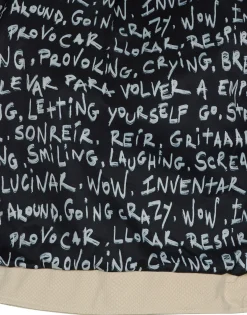 AROUND, GOING CRAZY, WOW, I
PROVOCAR, LLORAR, RESPIR
NG, PROVOKING, CRYING, BRE
LEVAR PARA VOLVER A EMP
NG, LETTING YOURSELF GO, S
SONREÍR, REÍR, GRITAR
NG, SMILING, LAUGHING, SCRE
LUCINAR, WOW, INVENTAR
AROUND, GOING CRAZY, WOW, I
PROVOCAR, LLORAR, RESPIR
NG, PROVOKING, CRYING, BRE